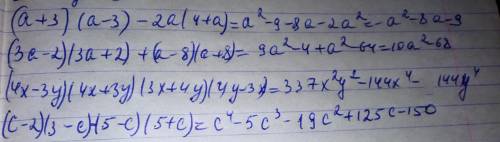 (a+3)(a-3)-2a(4+a)=a²-9-8a-2a²=-a²-8a-9
(3a-2)(3a+2)+(a-8)(a+8)=9a²-4+a²-64=10a²-68
(4x-3y)(4x+3y)(3x+4y)(4y-3x)=337x²y²-144x⁴-144y⁴
(c-2)(3-c)-(5-c)(5+c)=c⁴-5c³-19c²+125c-150